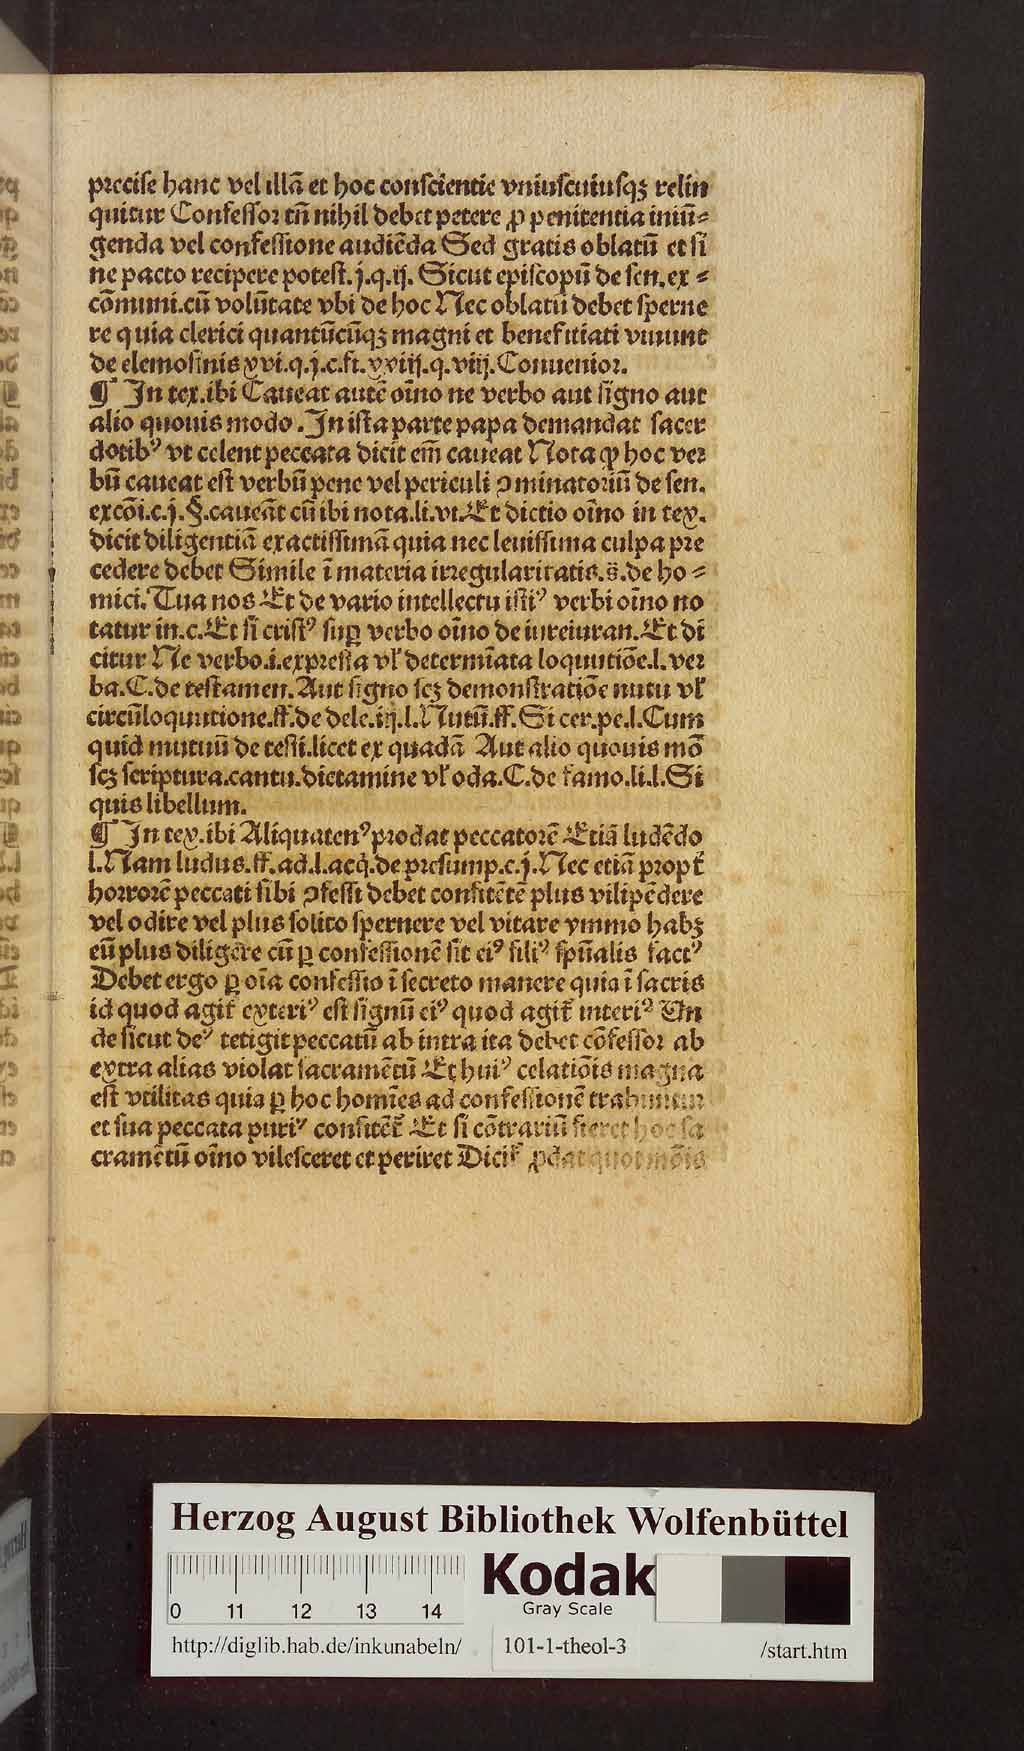 precise hanc vel illã et hoc conscientie vniuscuiusqꝫ relin
quitur Confessor tñ nihil debet petere ꝓ penitentia iniũ⸗
genda vel confessione audiẽda Sed gratis oblatũ et si
ne pacto recipere potest.j.q.ij. Sicut episcopũ de sen.ex⸗
cõmuni.cũ volũtate vbi de hoc Nec oblatũ debet sperne
re quia clerici quantũcũqꝫ magni et benefitiati viuunt
de elemosinis xvi.q.j.c.fi. xxiij.q.viij.Conuenior.
¶ In tex.ibi Caueat autẽ oĩno ne verbo aut signo aut
alio quouis modo . In ista parte papa demandat sacer
dotibꝰ vt celent peccata dicit em̃ caueat Nota ꝙ hoc ver
bũ caueat est verbũ pene vel periculi ꝯminatoriũ de sen.
excõi.c.j.§.caueãt cũ ibi nota.li.vi.Et dictio oĩno in tex.
dicit diligentiã exactissimã quia nec leuissima culpa pre
cedere debet Simile ĩ materia irregularitatis.s̄.de ho⸗
mici.Tua nos Et de vario intellectu istiꝰ verbi oĩno no
tatur in.c.Et si cristꝰ suꝑ verbo oĩno de iureiuran.Et di
citur Ne verbo.i.expresta vl̓ determĩata loquutiõe.l.ver
ba.C.de testamen.Aut signo scꝫ demonstratiõe nutu vl̓
circũloquutione.ff.de dele.iij.l.Nutũ.ff.Si cer.pe.l.Cum
quid mutuũ de testi.licet ex quadã Aut alio quouis mõ
scꝫ scriptura.cantu.dictamine vl̓ oda.C.de famo.li.l.Si
quis libellum.
¶ In tex.ibi Aliquatenꝰ prodat peccatorẽ Etiã ludẽdo
l.Nam ludus.ff.ad.l.acq̇.de presump.c.j.Nec etiã propt̃
horrorẽ peccati sibi ꝯfessi debet confitẽtẽ plus vilipẽdere
vel odire vel plus solito spernere vel vitare ymmo habꝫ
eũ plus diligere cũ ꝑ confessionẽ sit eiꝰ filiꝰ spũalis factꝰ
Debet ergo ꝑ oĩa confessio ĩ secreto manere quia ĩ sacris
id quod agit̃ exteriꝰ est signũ eiꝰ quod agit̃ interiꝰ Vn
de sicut deꝰ tetigit peccatũ ab intra ita debet cõfessor ab
extra alias violat sacramẽtũ Et huiꝰ celatiõis magna
est vtilitas quia ꝑ hoc homĩes ad confessionẽ trahuntur
et sua peccata puriꝰ confitẽt̃ Et si cõtrariũ fieret hoc sa
cramẽtũ oĩno vilesceret et periret Dicit̃ ꝓdat quot mõis
Herzog August Bibliothek Wolfenbüttel
Kodak
Gray Scale
0 11 12 13 14
http://diglib.hab.de/inkunabeln/ 101-1-theol-3 /start.htm